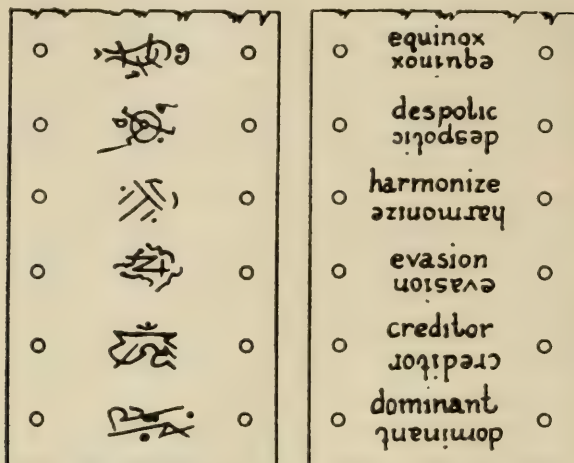 equinox
equinox
despotic
despotic
harmonize
harmonize
evasion
evasion
creditor
creditor
dominant
dominant